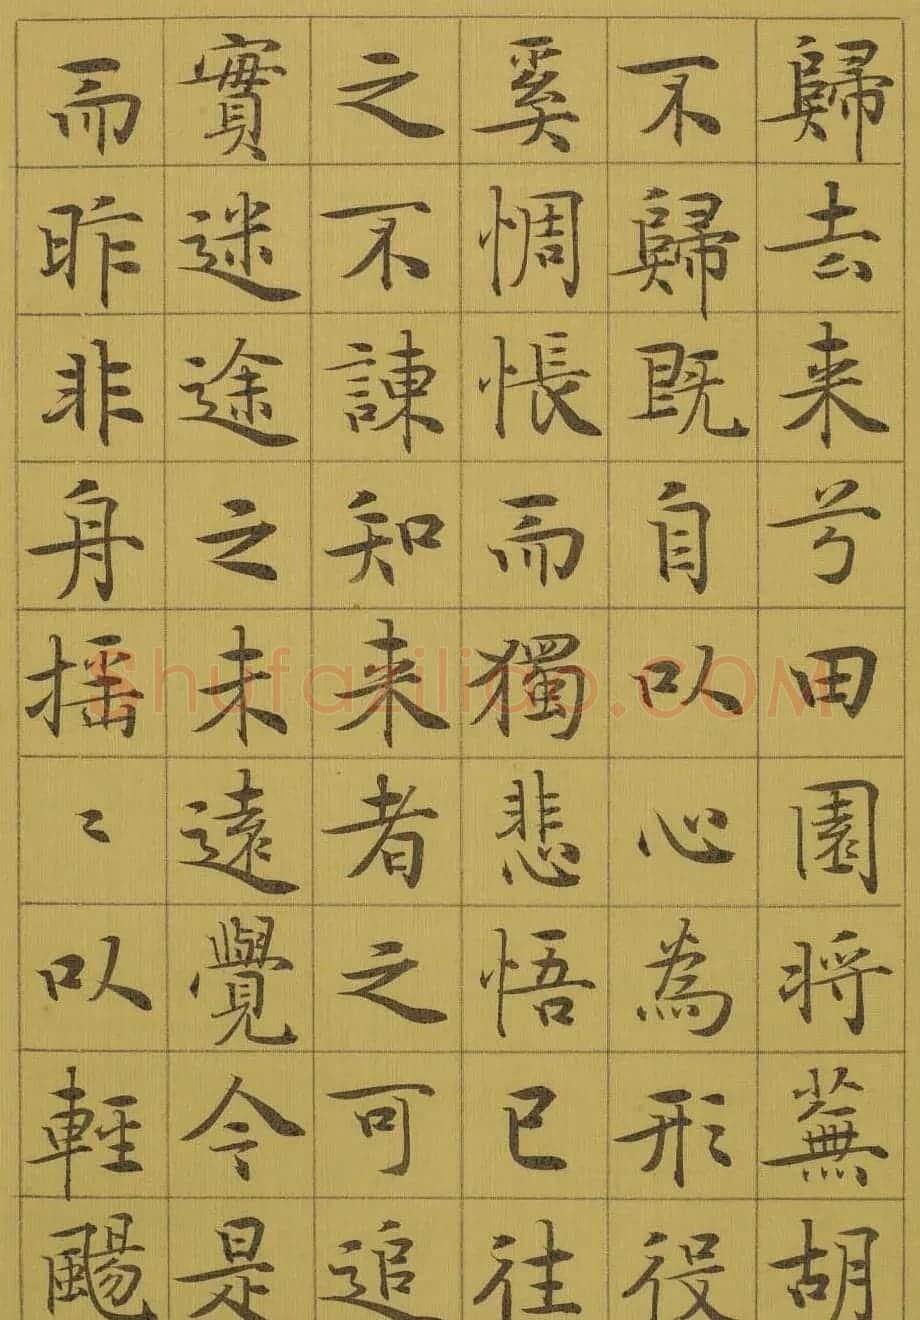 歸去来兮田園将蕪胡
不歸既自以心為形役
奚惆悵而獨悲悟已往
之不諫知来者之可追
實迷途之未遠覺今是
而昨非舟摇〻以輕颺
Shufaziliao.COM